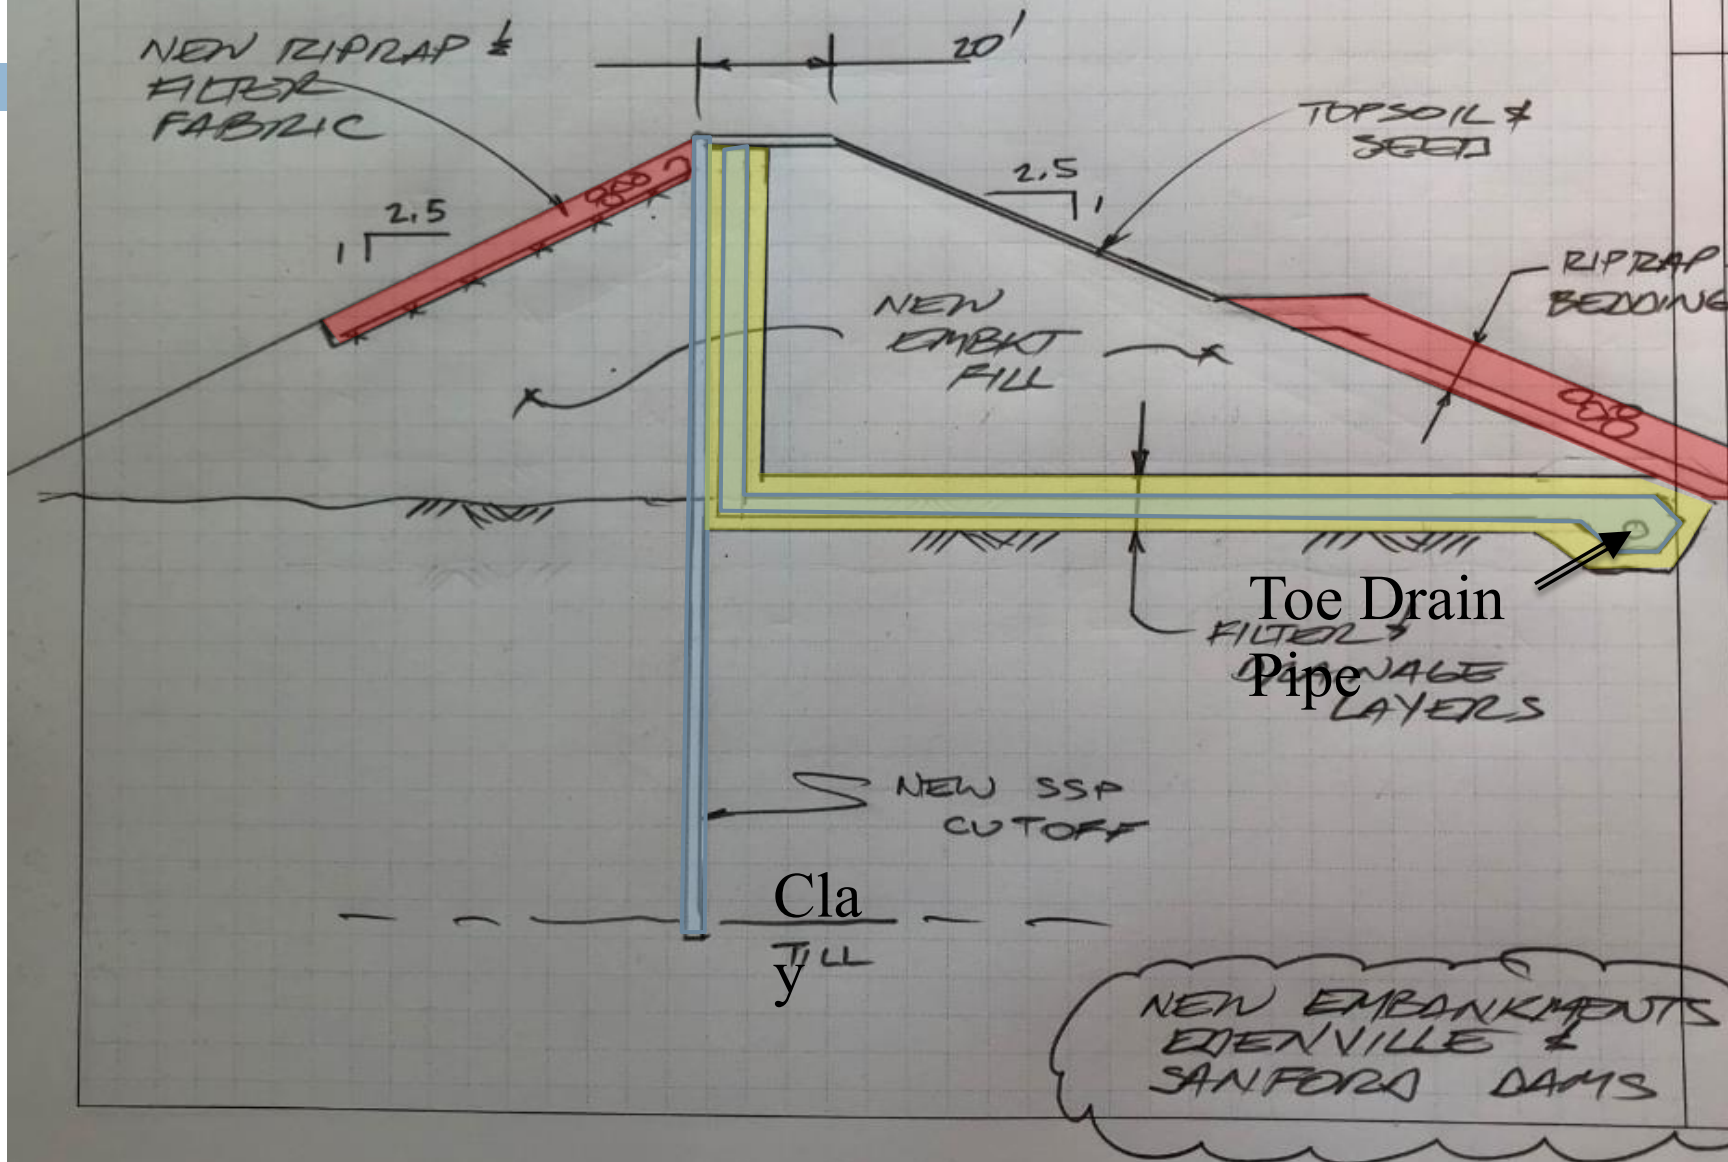 NEW RIPRAP &
FILTER
FABRIC
20'
TOPSOIL &
SEED
2.5
1
2.5
1
RIPRAP
BEDDING
NEW
EMBKT
FILL
Toe Drain
Pipe
FILTER &
DRAINAGE
LAYERS
NEW SSP
CUTOFF
Cla
y
TILL
NEW EMBANKMENTS
EDENVILLE &
SANFORD DAMS